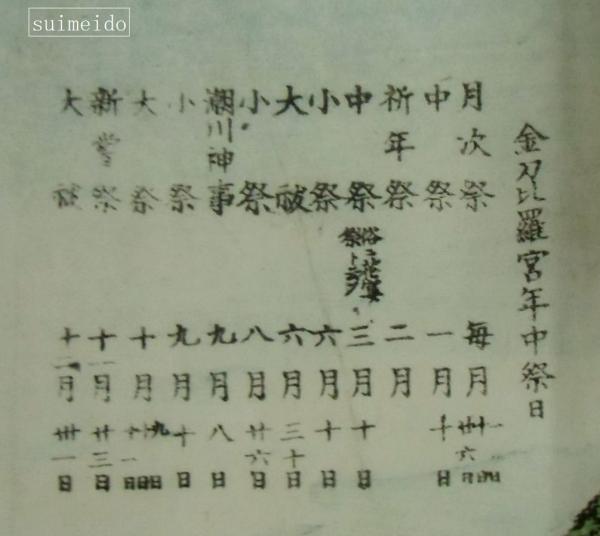 suimeido
金刀比羅宮年中祭日
月次祭 毎月
中祭 一月十日
祈年祭 二月
中祭 俗ニ花宴祭ト 三月十日
小祭 六月十日
大祓 六月三十日
小祭 八月廿六日
潮川神事 九月八日
小祭 九月十日
大祭 十月
新嘗祭 十一月廿三日
大祓 十二月卅一日